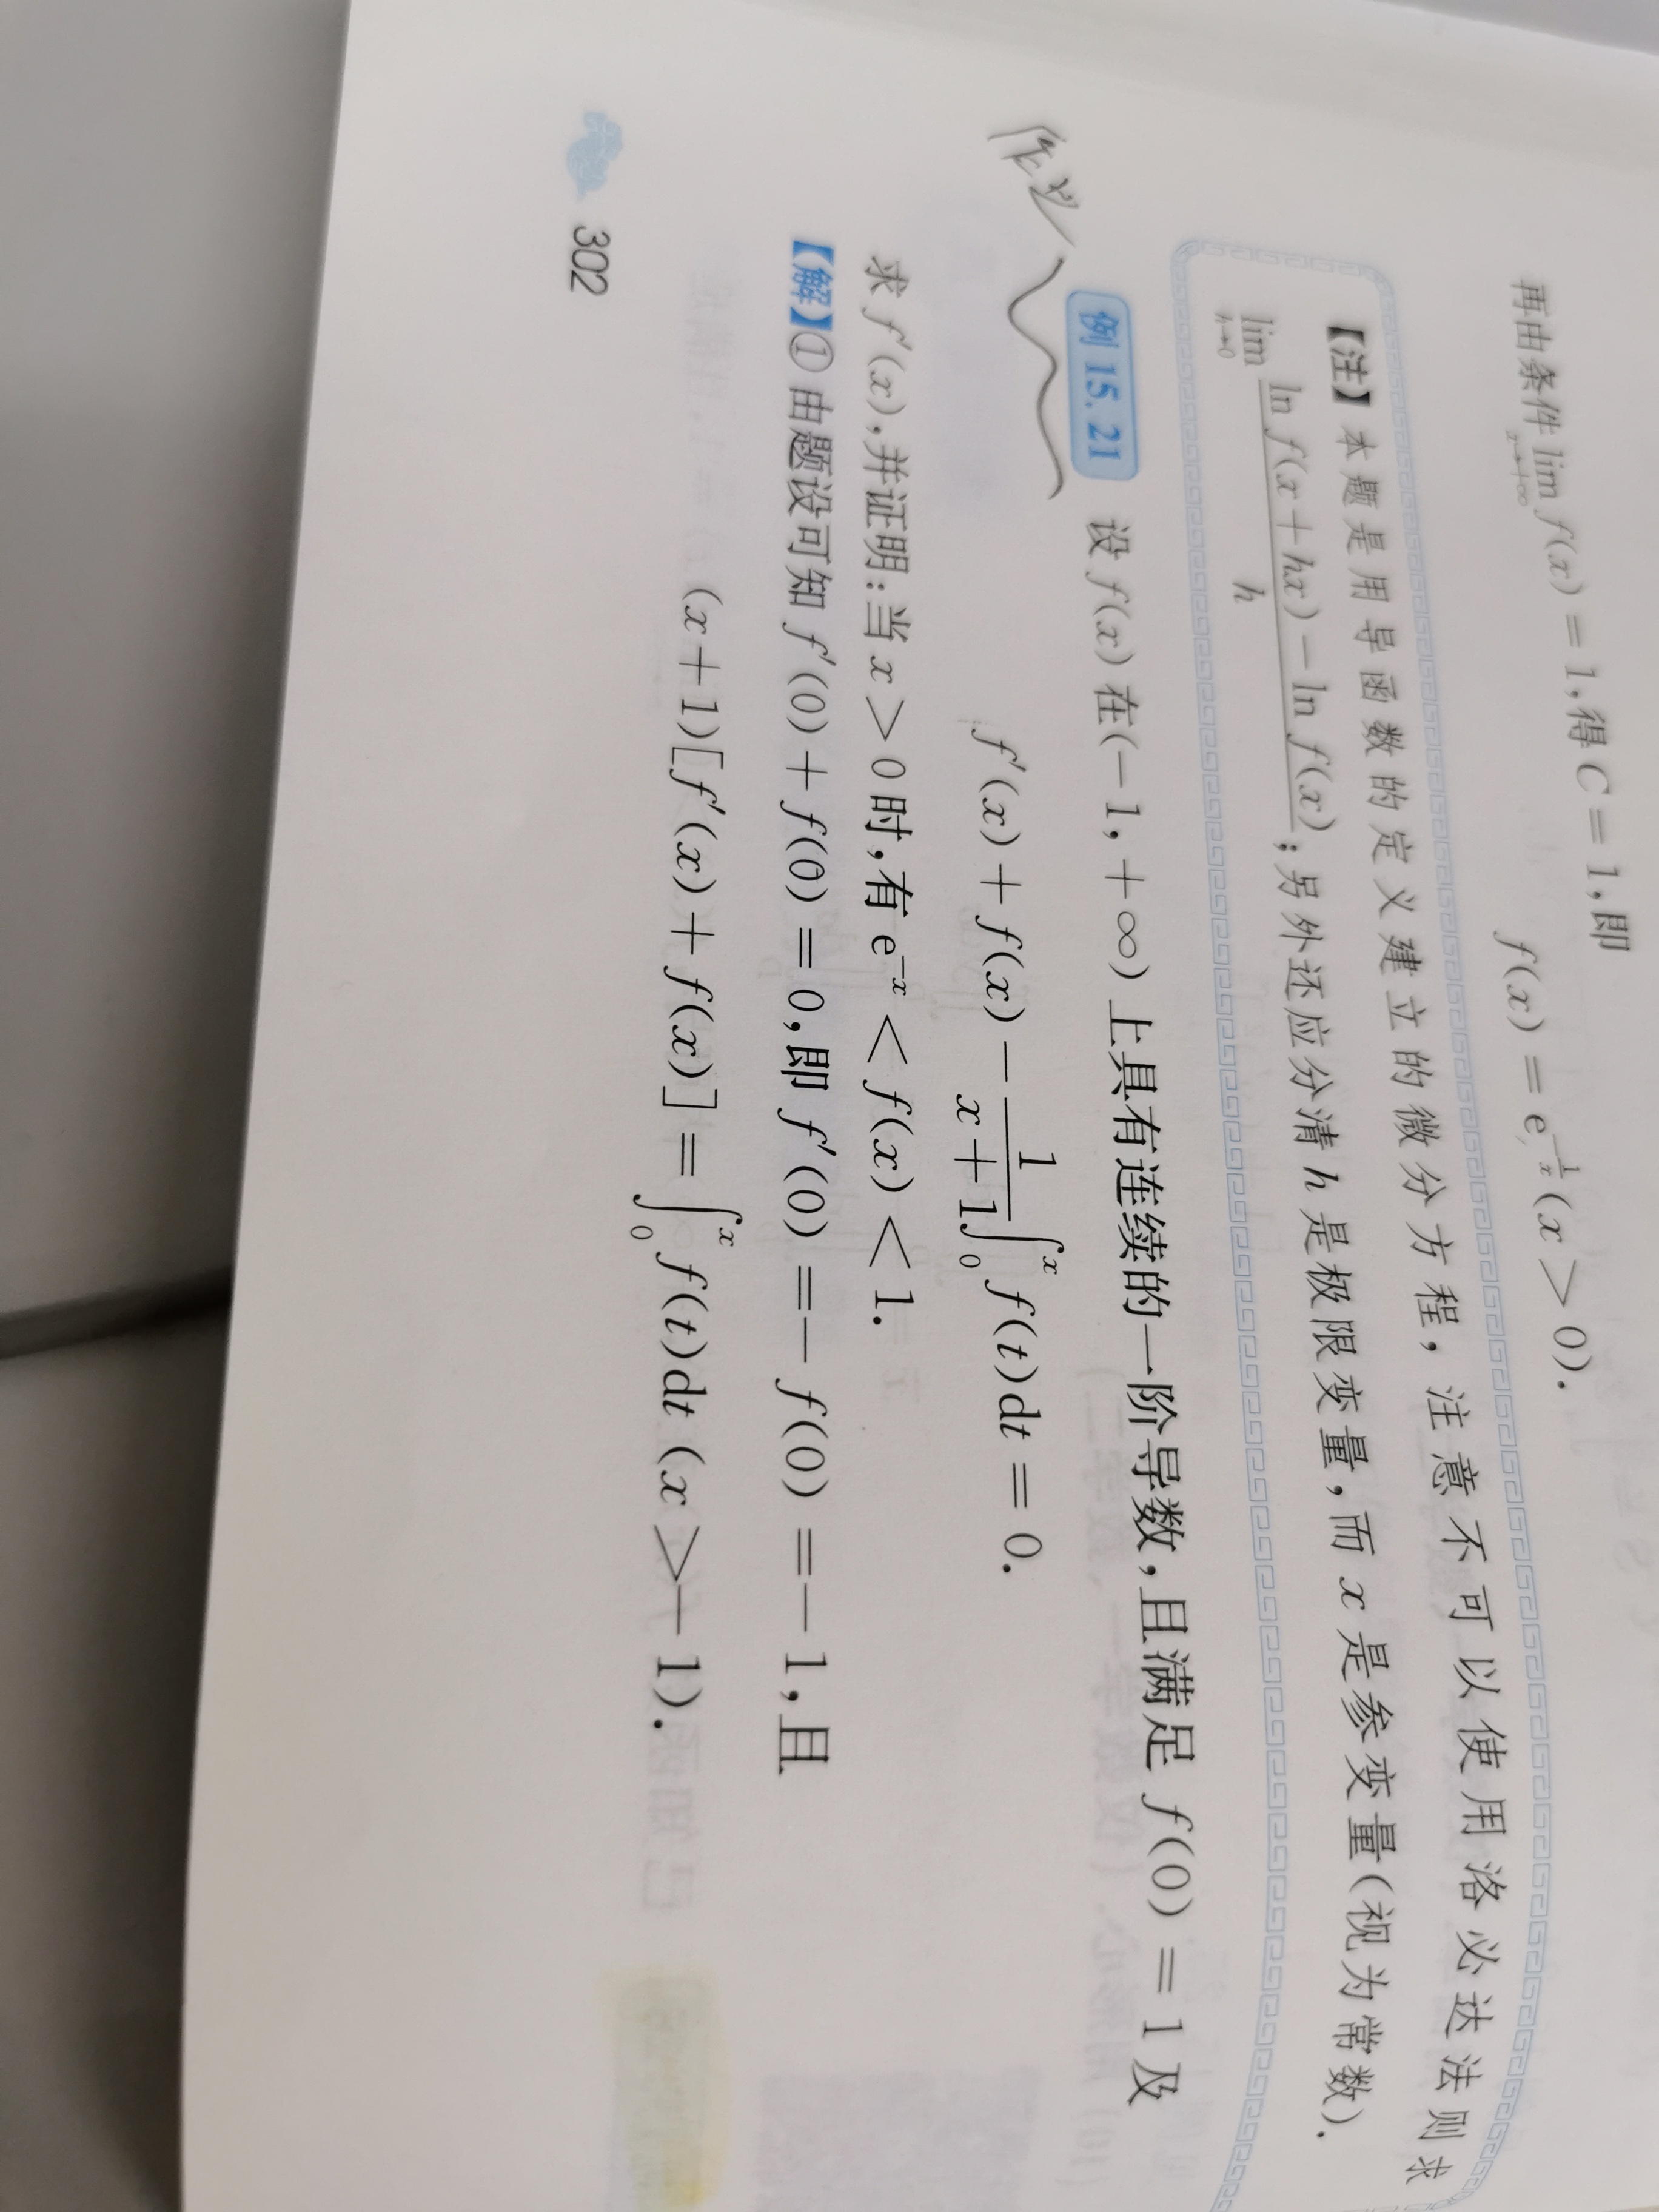 再由条件 lim_{x→+∞} f(x) = 1,得 C = 1,即
f(x) = e^{-\frac{1}{x}} (x > 0).
【注】本题是用导函数的定义建立的微分方程,注意不可以使用洛必达法则求
lim_{h→0} \frac{ln f(x+hx) - ln f(x)}{h};另外还应分清 h 是极限变量,而 x 是参变量(视为常数).
例 15.21 设 f(x) 在(-1,+∞) 上具有连续的一阶导数,且满足 f(0) = 1 及
f'(x) + f(x) - \frac{1}{x+1}∫_0^x f(t)dt = 0.
求 f'(x),并证明:当 x > 0 时,有 e^{-x} < f(x) < 1.
【解】① 由题设可知 f'(0) + f(0) = 0,即 f'(0) =- f(0) =- 1,且
(x+1)[f'(x) + f(x)] = ∫_0^x f(t)dt (x >- 1).
302